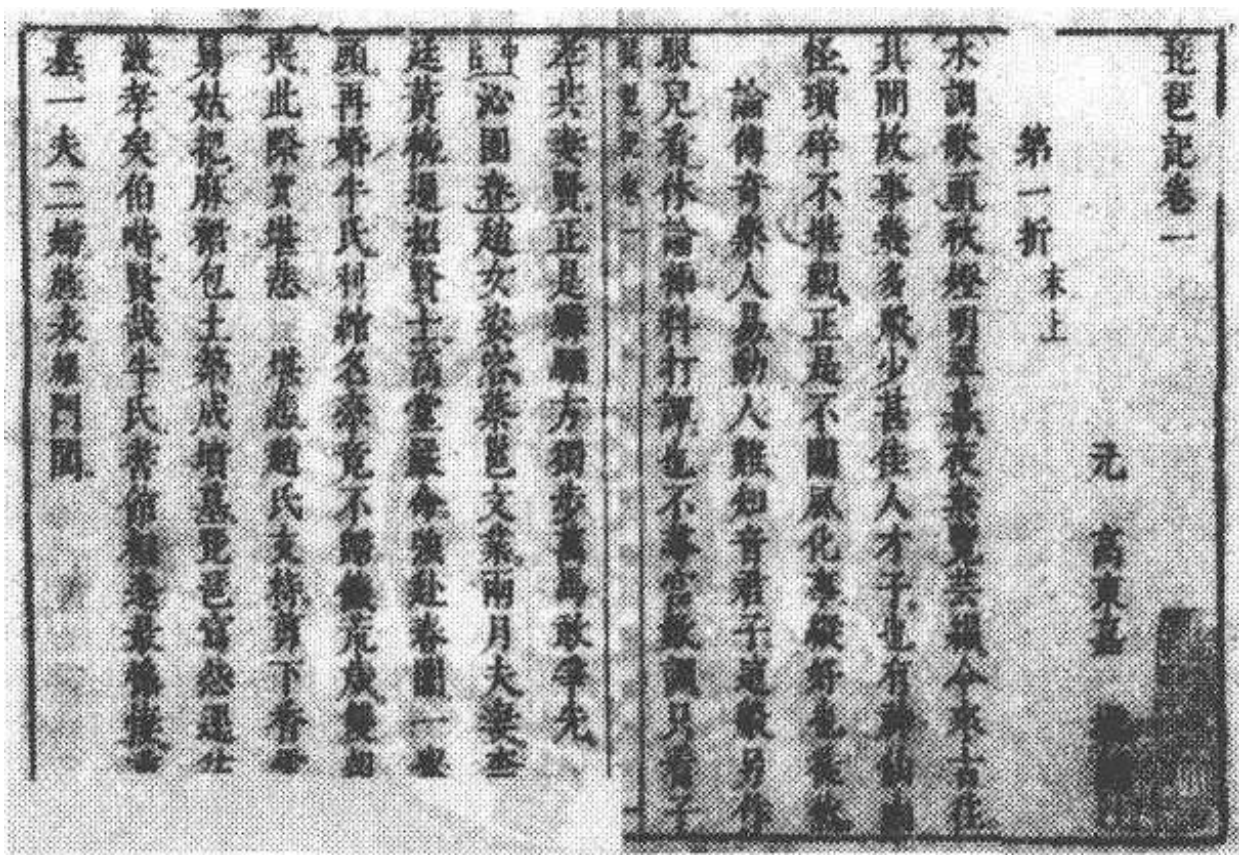 琵琶記卷一
元 高東嘉
第一折 末上
水調歌頭秋燈明翠幕夜案覽芸編今來古往
其間故事幾多般少甚佳人才子也有神仙幽
怪瑣碎不堪觀正是不關風化事縱好也徒然
論傳奇樂人易動人難知音君子這般另作
眼兒看休論插科打諢也不尋宮數調只看子
孝共妻賢正是驊騮方獨步萬馬敢爭先
沁園春趙女姿容蔡邕文業兩月夫妻奈
廷黃榜遍招賢士高堂嚴命強赴春闈一舉
頭再婚牛氏利綰名牽竟不歸饑荒歲雙親
喪此際實堪悲 堪悲趙氏支持剪下香雲
舅姑把麻裙包土築成墳墓琵琶寫怨逕往
哉孝矣伯喈賢哉牛氏書館相逢最慘悽
墓一夫二婦旌表耀門閭